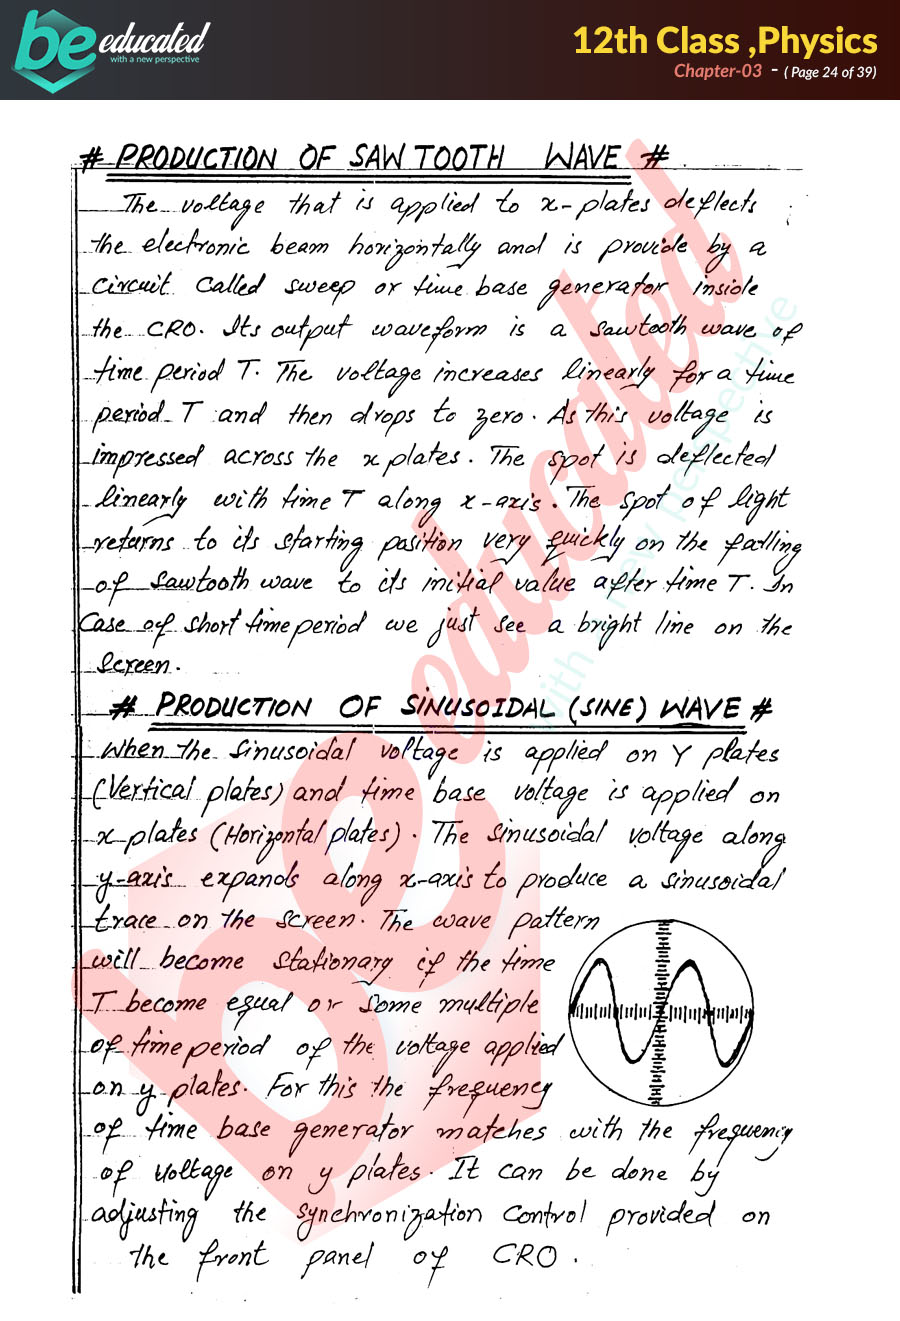 be educated
with a new perspective
12th Class ,Physics
Chapter-03 - ( Page 24 of 39)
# PRODUCTION OF SAW TOOTH WAVE #
The voltage that is applied to x-plates deflects
the electronic beam horizontally and is provide by a
circuit called sweep or time base generator inside
the CRO. Its output waveform is a sawtooth wave of
time period T. The voltage increases linearly for a time
period T and then drops to zero. As this voltage is
impressed across the x plates. The spot is deflected
linearly with time T along x-axis. The spot of light
returns to its starting position very quickly on the falling
of sawtooth wave to its initial value after time T. In
Case of short time period we just see a bright line on the
screen.
# PRODUCTION OF SINUSOIDAL (SINE) WAVE #
When the sinusoidal voltage is applied on Y plates
(Vertical plates) and time base voltage is applied on
x plates (Horizontal plates). The sinusoidal voltage along
y-axis expands along x-axis to produce a sinusoidal
trace on the screen. The wave pattern
will become stationary if the time
T become equal or some multiple
of time period of the voltage applied
on y plates. For this the frequency
of time base generator matches with the frequency
of voltage on y plates. It can be done by
adjusting the synchronization control provided on
the front panel of CRO.
be educated
with a new perspective